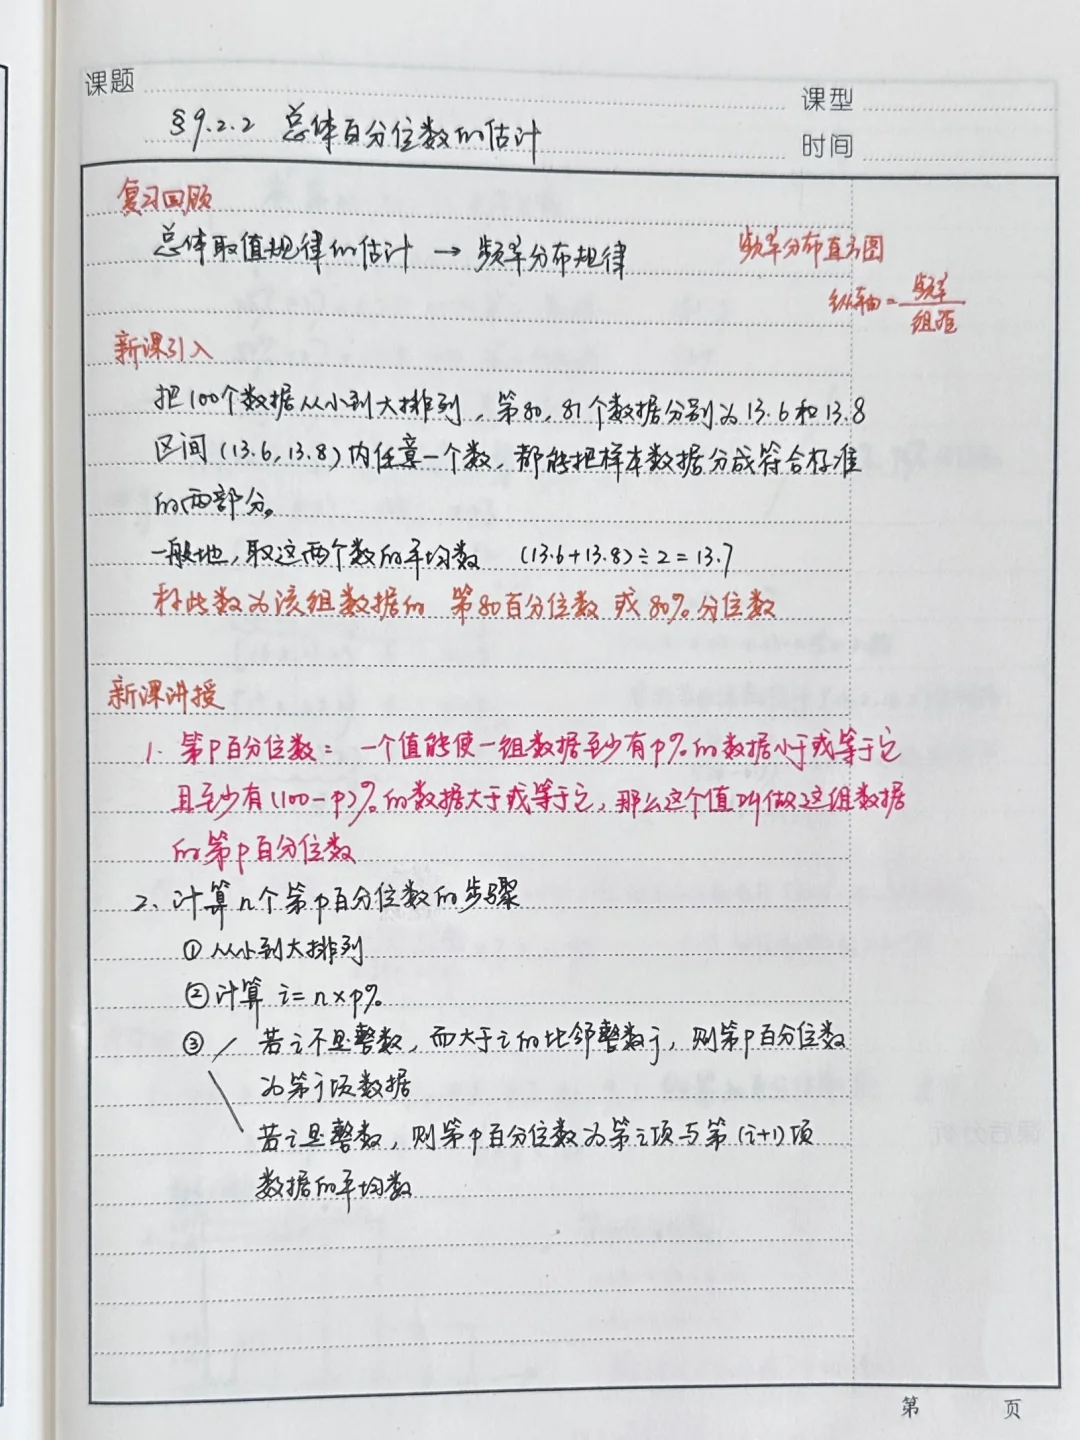 课题
课型
§9.2.2 总体百分位数的估计
时间
复习回顾
总体取值规律的估计 → 频率分布规律
频率分布直方图
纵轴=频率/组距
新课引入
把100个数据从小到大排列，第80，81个数据分别为13.6和13.8
区间(13.6,13.8)内任意一个数，都能把样本数据分成符合标准
的两部分。
一般地，取这两个数的平均数 (13.6+13.8)÷2=13.7
称此数为该组数据的 第80百分位数 或80%分位数
新课讲授
1. 第P百分位数：一个值能使一组数据至少有p%的数据小于或等于它
且至少有(100-p)%的数据大于或等于它，那么这个值叫做这组数据
的第p百分位数
2、计算n个第p百分位数的步骤
①从小到大排列
②计算 i=n×p%
③ 若i不是整数，而大于i的比邻整数j，则第P百分位数
为第j项数据
若i是整数，则第p百分位数为第i项与第(i+1)项
数据的平均数
第 页